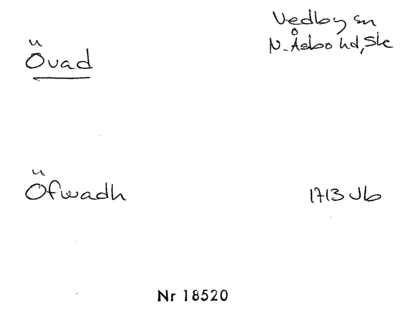 Övad
Vedby sn
N. Åsbo hd, Ske
Öfwadh
1713 Jb
Nr 18520